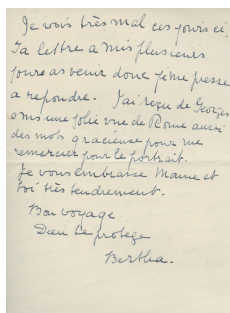 Je vois très mal ces jours ci.
Ta lettre a mis plusieurs
jours a venir donc je me presse
a repondre. J'ai reçu de Georges
une jolie vue de Rome aussi
des mots gracieuse pour me
remercier pour le portrait.
Je vous embrasse Mame et
toi très tendrement.
Bon voyage
Dieu te protège
Bertha.